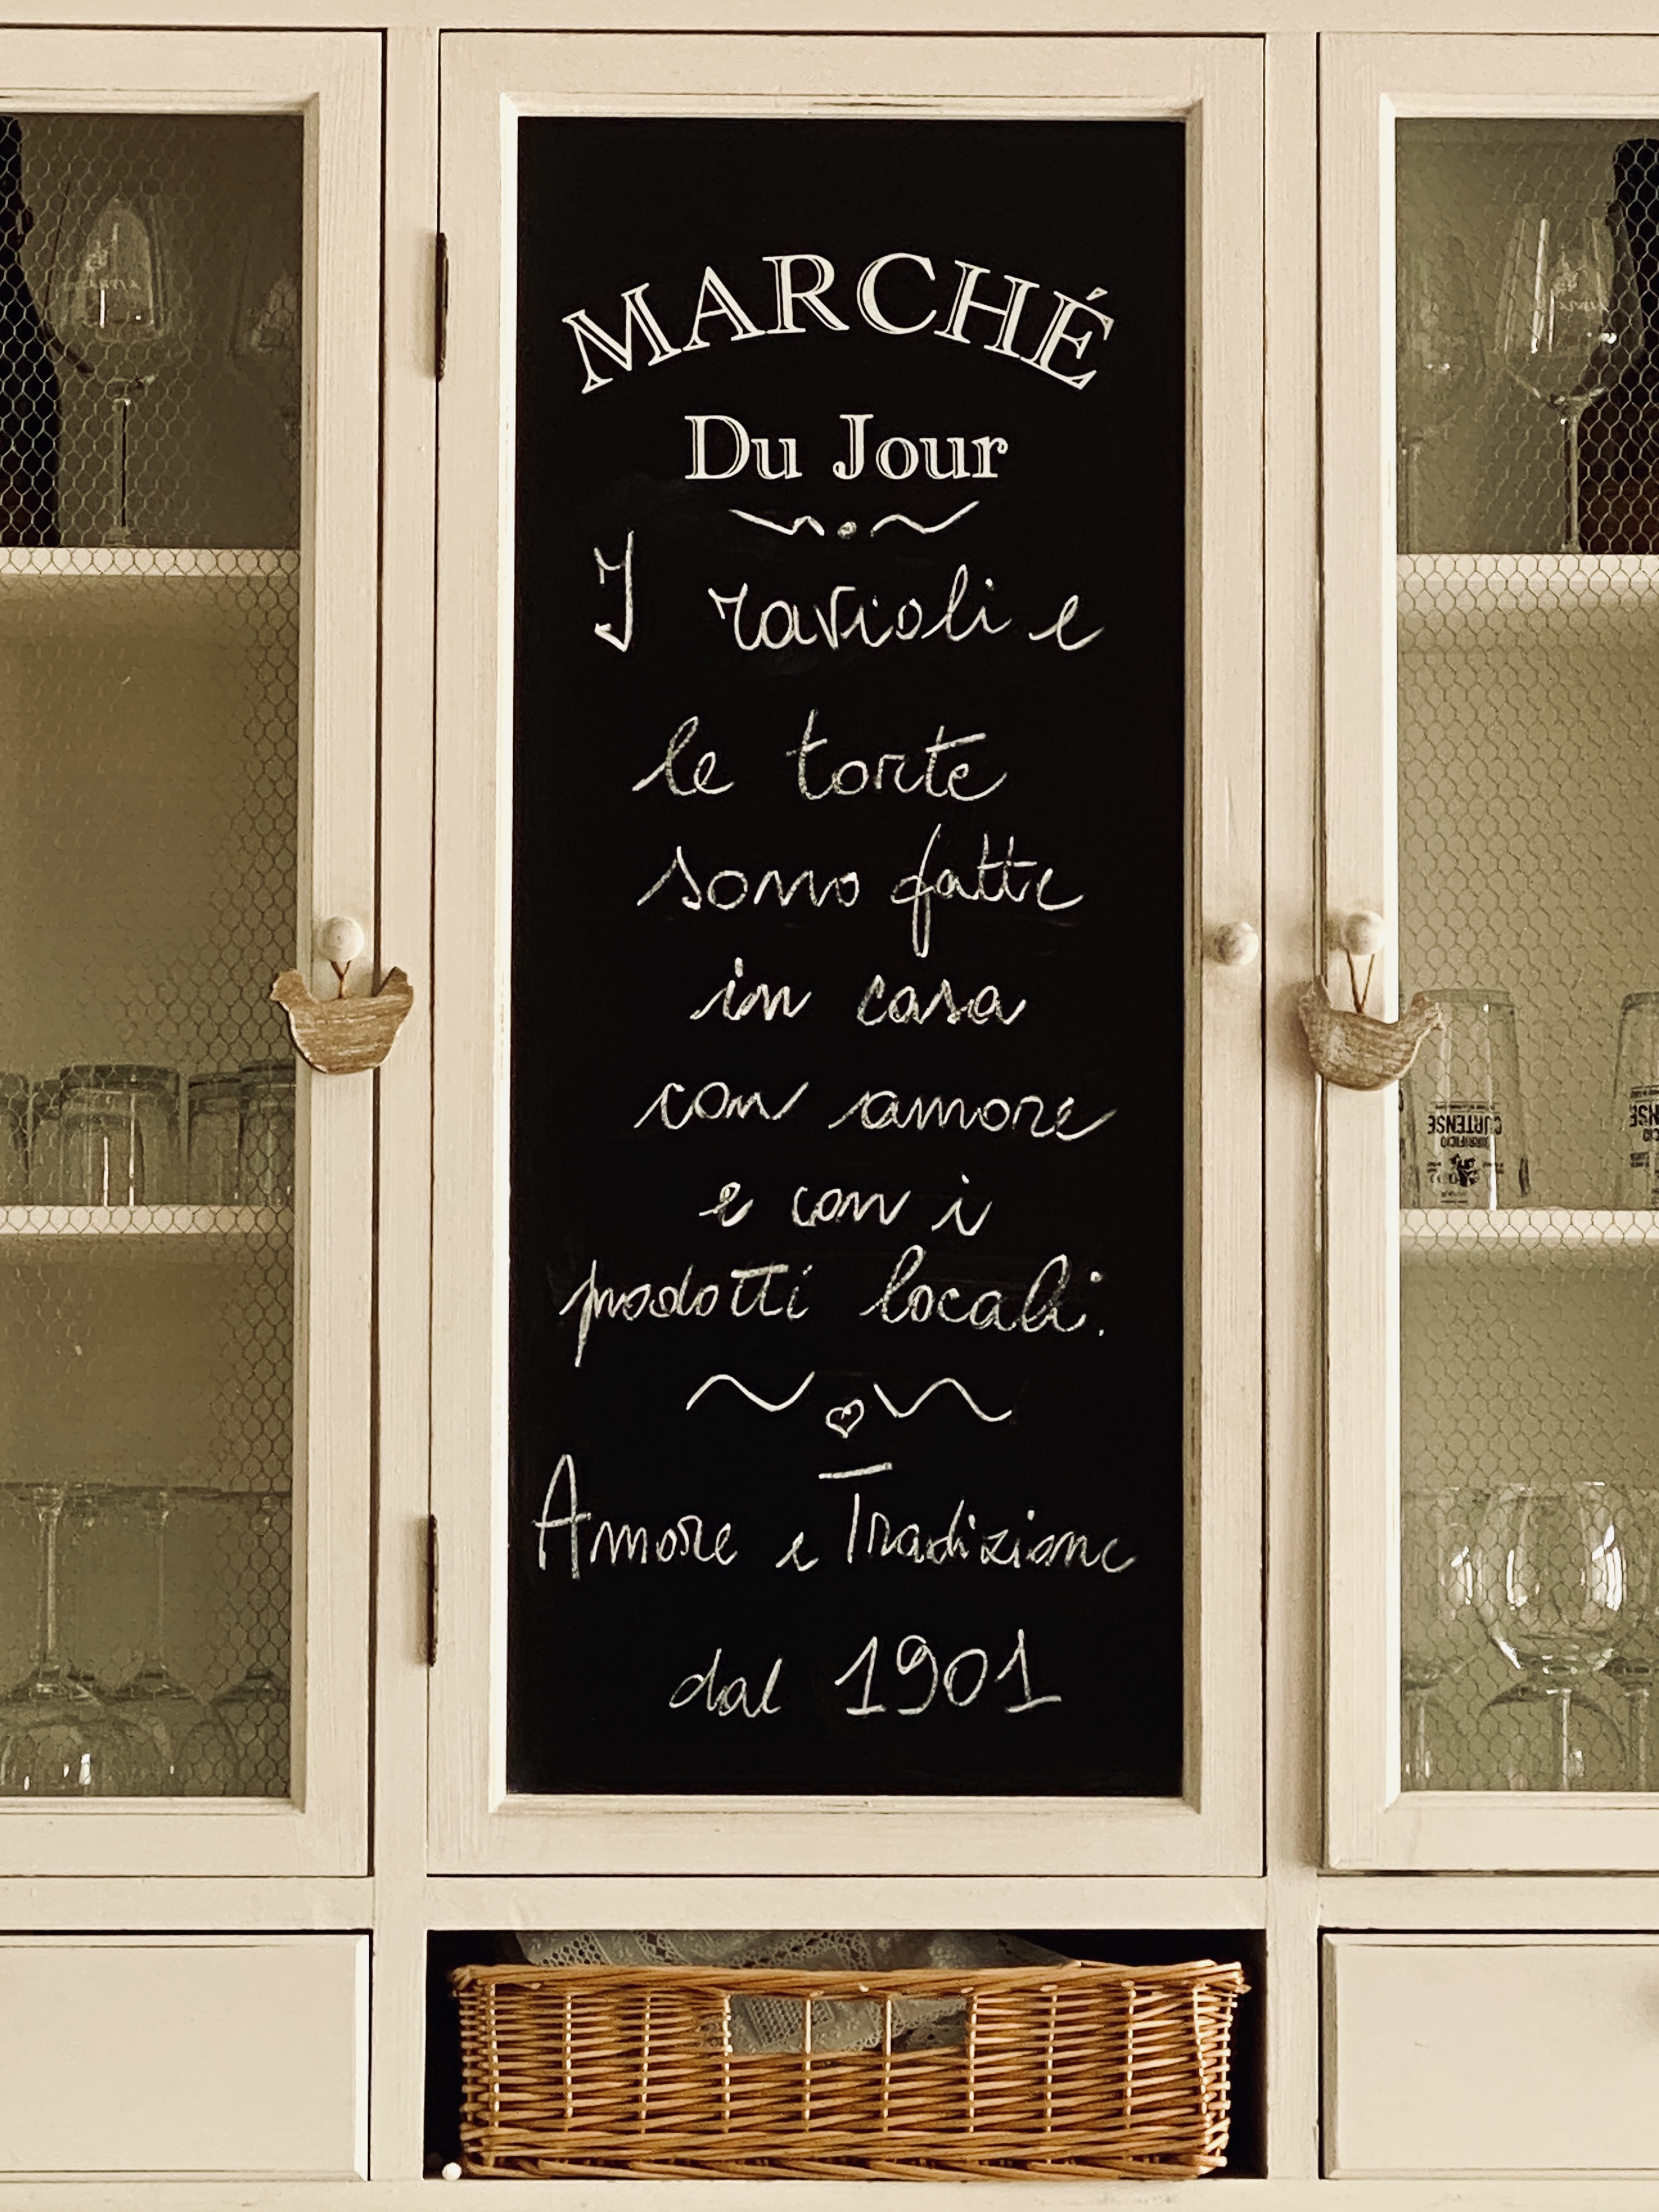 MARCHÉ
Du Jour
I ravioli e
le torte
sono fatte
in casa
con amore
e con i
prodotti locali.
Amore e Tradizione
dal 1901
CURTENSE
BIRRIFICIO